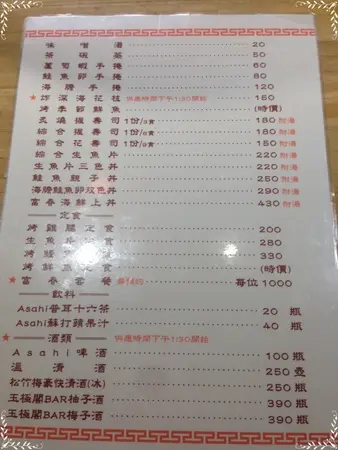 味噌湯 20
茶碗蒸 50
蘆筍蝦手捲 60
鮭魚卵手捲 80
海膽手捲 120
★炸深海花枝 供應時間下午1:30開始 150
烤季節鮮魚 (時價)
炙燒握壽司 1份/8貫 180 附湯
綜合握壽司 1份/8貫 180 附湯
綜合花壽司 1份/9貫 150 附湯
綜合生魚片 220
生魚片三色丼 220 附湯
鮭魚親子丼 250 附湯
海膽鮭魚卵双色丼 290 附湯
富春海鮮上丼 430 附湯
定食
烤雞腿定食 200
生魚片定食 280
烤鰻魚定食 330
烤鮮魚定食 (時價)
★富春套餐 每位1000
飲料
Asahi普耳十六茶 20 瓶
Asahi蘇打蘋果汁 40 瓶
★酒類 供應時間下午1:30開始
Asahi啤酒 100 瓶
溫清酒 250 壺
松竹梅豪快清酒(冰) 250 瓶
玉極閣BAR柚子酒 390 瓶
玉極閣BAR梅子酒 390 瓶